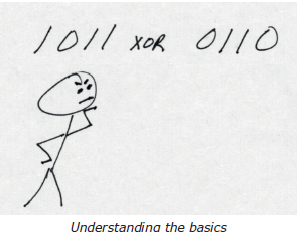 1011 XOR 0110
Understanding the basics